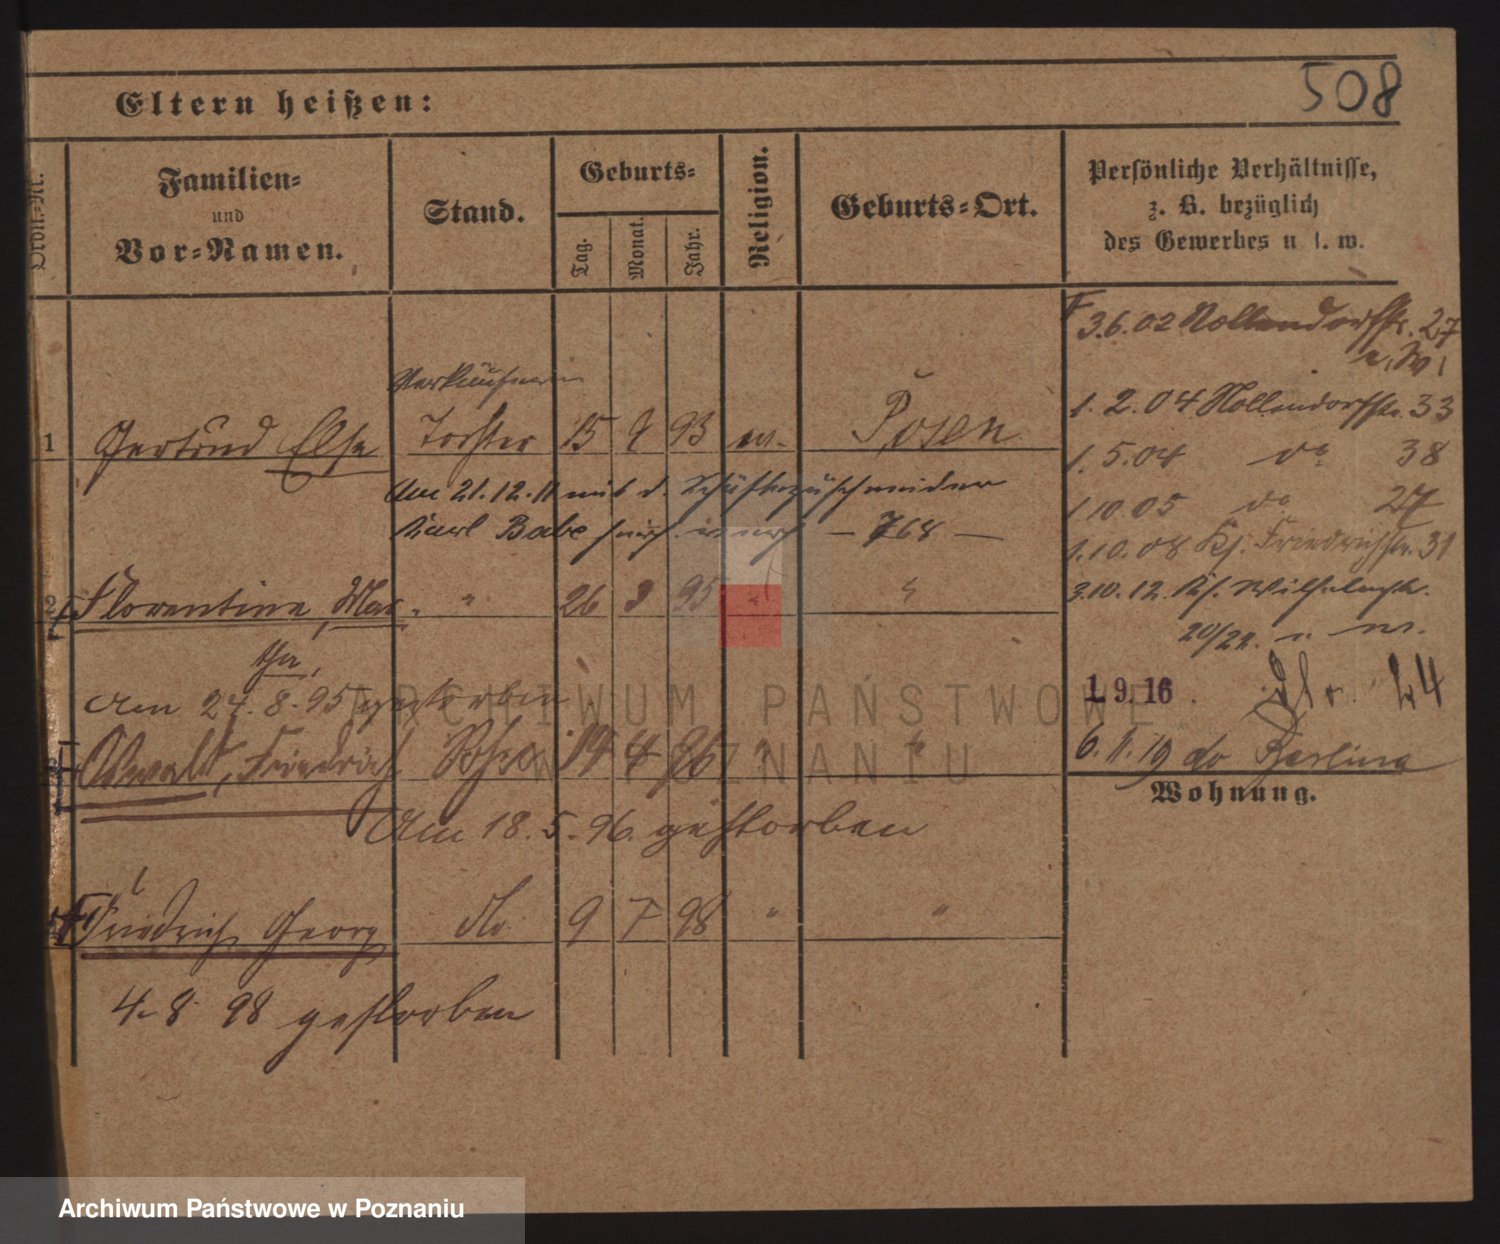 508
Eltern heißen:
Ordn.-Nr.
Familien-
und
Vor-Namen.
Stand.
Geburts-
Tag.
Monat.
Jahr.
Religion.
Geburts-Ort.
Persönliche Verhältnisse,
z. B. bezüglich
des Gewerbes u. s. w.
3.6.02 Nollendorfstr. 27
Verkäuferin
1 Gertrud Else Tochter 15 9 93 ev. Posen
1. 2. 04 Nollendorfstr. 33
1. 5.04 do 38
Am 21.12.11 mit d. Schäftezuschneider
1 10 05 do 27
Karl Babe 768
1.10.08 Friedrichstr. 31
2 Florentine, Mar- " 26 3 95 " "
tha,
3.10.12. Wilhelmstr.
20/22.
am 24.8.95 gestorben
1. 9. 16. 24
3 Oswald, Friedrich Sohn 19 4 96 " "
6.11.19 do Berlin
Wohnung.
Am 18.5.96. gestorben
4 Friedrich Georg do 9 7 98 " "
4. 8 98 gestorben
ARCHIWUM PAŃSTWOWE
W POZNANIU
Archiwum Państwowe w Poznaniu